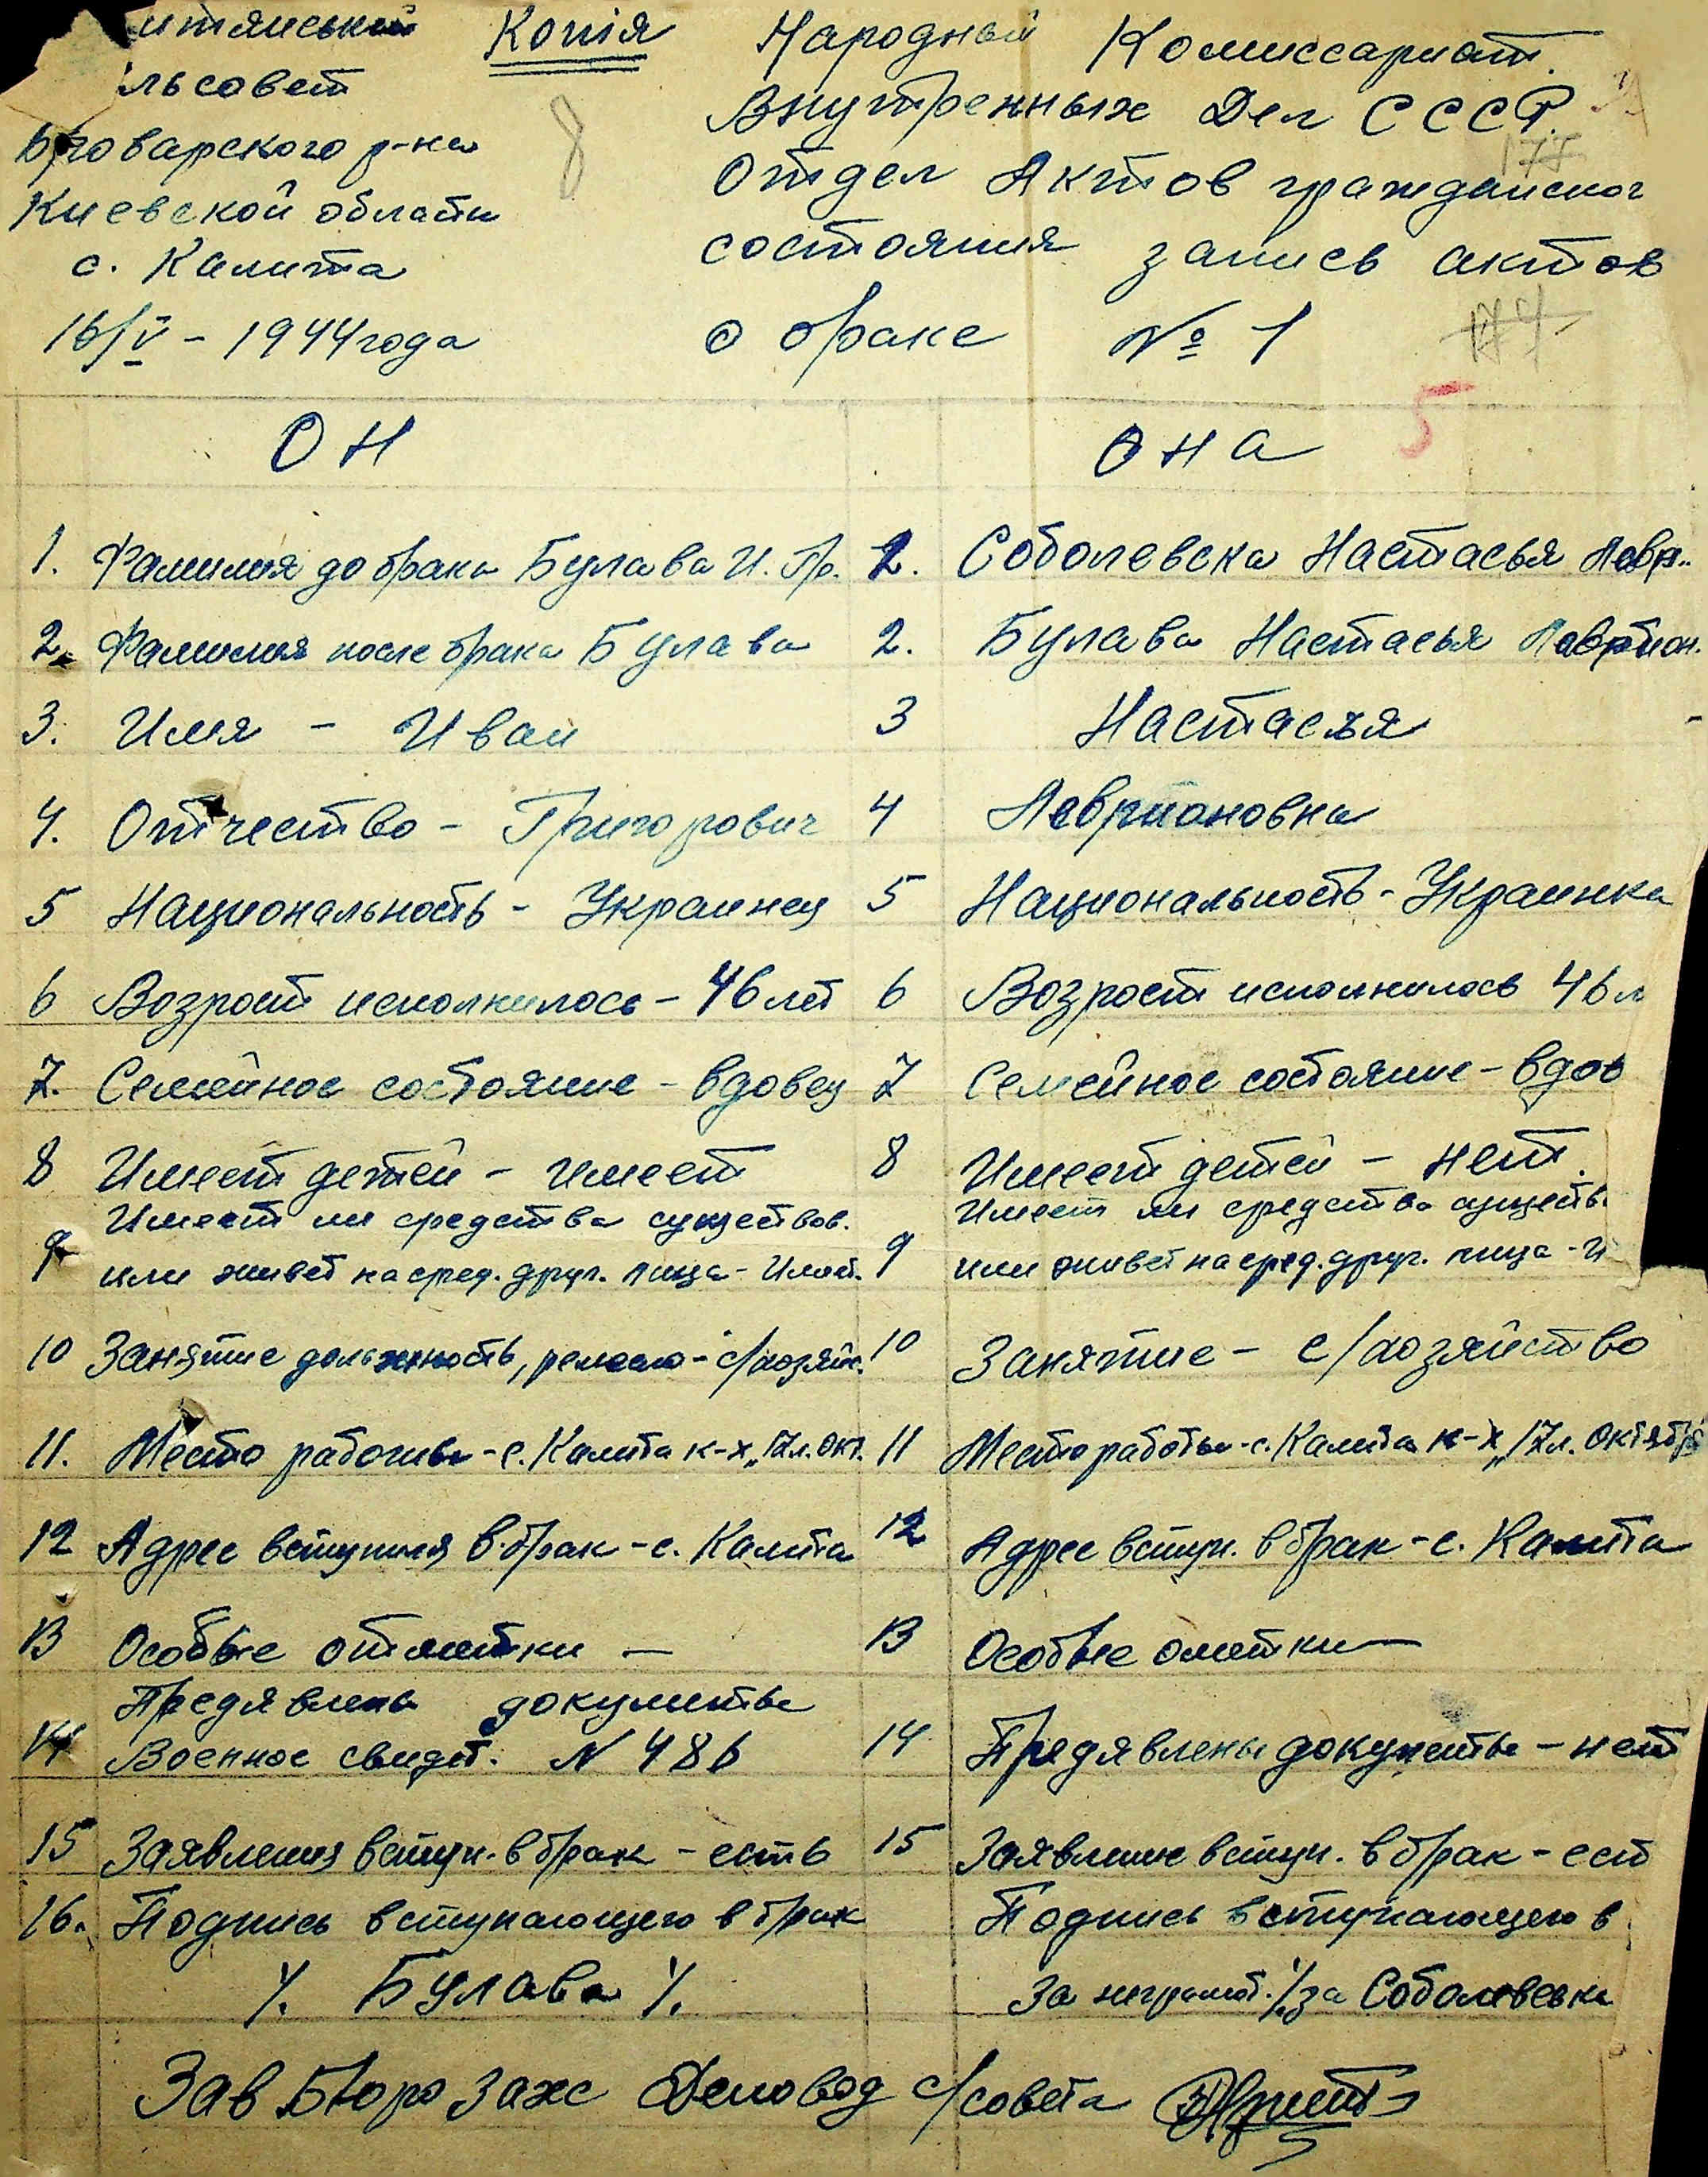 итянський
льсовет
Броварского р-на
Киевской области
с. Калита
16/V - 1944 года
Копія
8
Народный Комиссариат
Внутренных Дел СССР.
Отдел Актов гражданског
состояния запись актов
о браке № 1
5
ОН
Она
1. Фамилия до брака Булава И. Гр.
2. Соболевска Настасья Лавр..
2. Фамилия после брака Булава
2. Булава Настасья Лаврион.
3. Имя - Иван
3 Настасья
4. Отчество - Григорович
4 Лаврионовна
5 Национальность - Украинец
5 Национальность - Украинка
6 Возрост исполнилось - 46 лет
6 Возрост исполнилось 46 л
7. Семейное состояние - вдовец
7 Семейное состояние - вдов
8 Имеет детей - имеет
8 Имеет детей - нет.
Имеет ли средства существов.
9 или живет на сред. друг. лица - Имеет.
Имеет ли средства существ.
9 или живет на сред. друг. лица - И
10 Занятие должность, ремесло - с/хозяйс.
10 Занятие - с/хозяйство
11. Место работы - с. Калита к-х „17л. Окт.
11 Место работы - с. Калита к-х „17л. Октября
12 Адрес вступился в брак - с. Калита
12 Адрес вступ. в брак - с. Калита
13 Особые отметки —
13 Особые ометки —
Предявлены документы
14 Военное свидет. N 486
14 Предявлены документы - нет
15 Заявления вступ. в брак - есть
15 Заявление вступ. в брак - ест
16. Подпись вступающего в брак
Подпись вступающего в
/. Булава /.
За неграмот. /. за Соболевска
Зав Бюро Загс Деловод с/совета